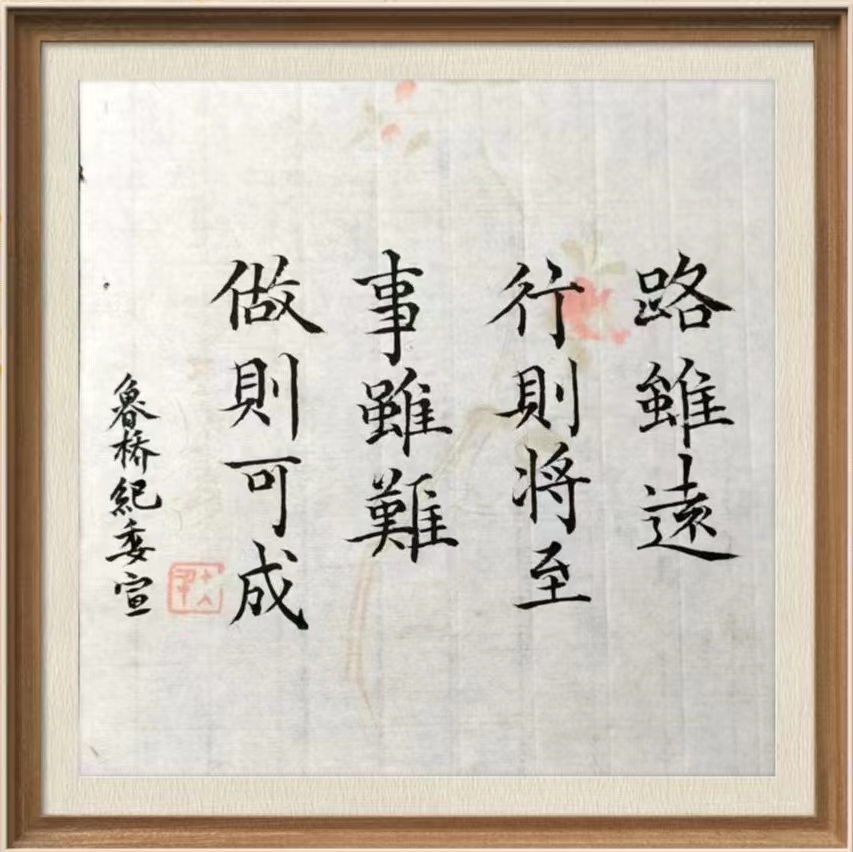 路雖遠
行則将至
事雖難
做則可成
魯桥紀委宣